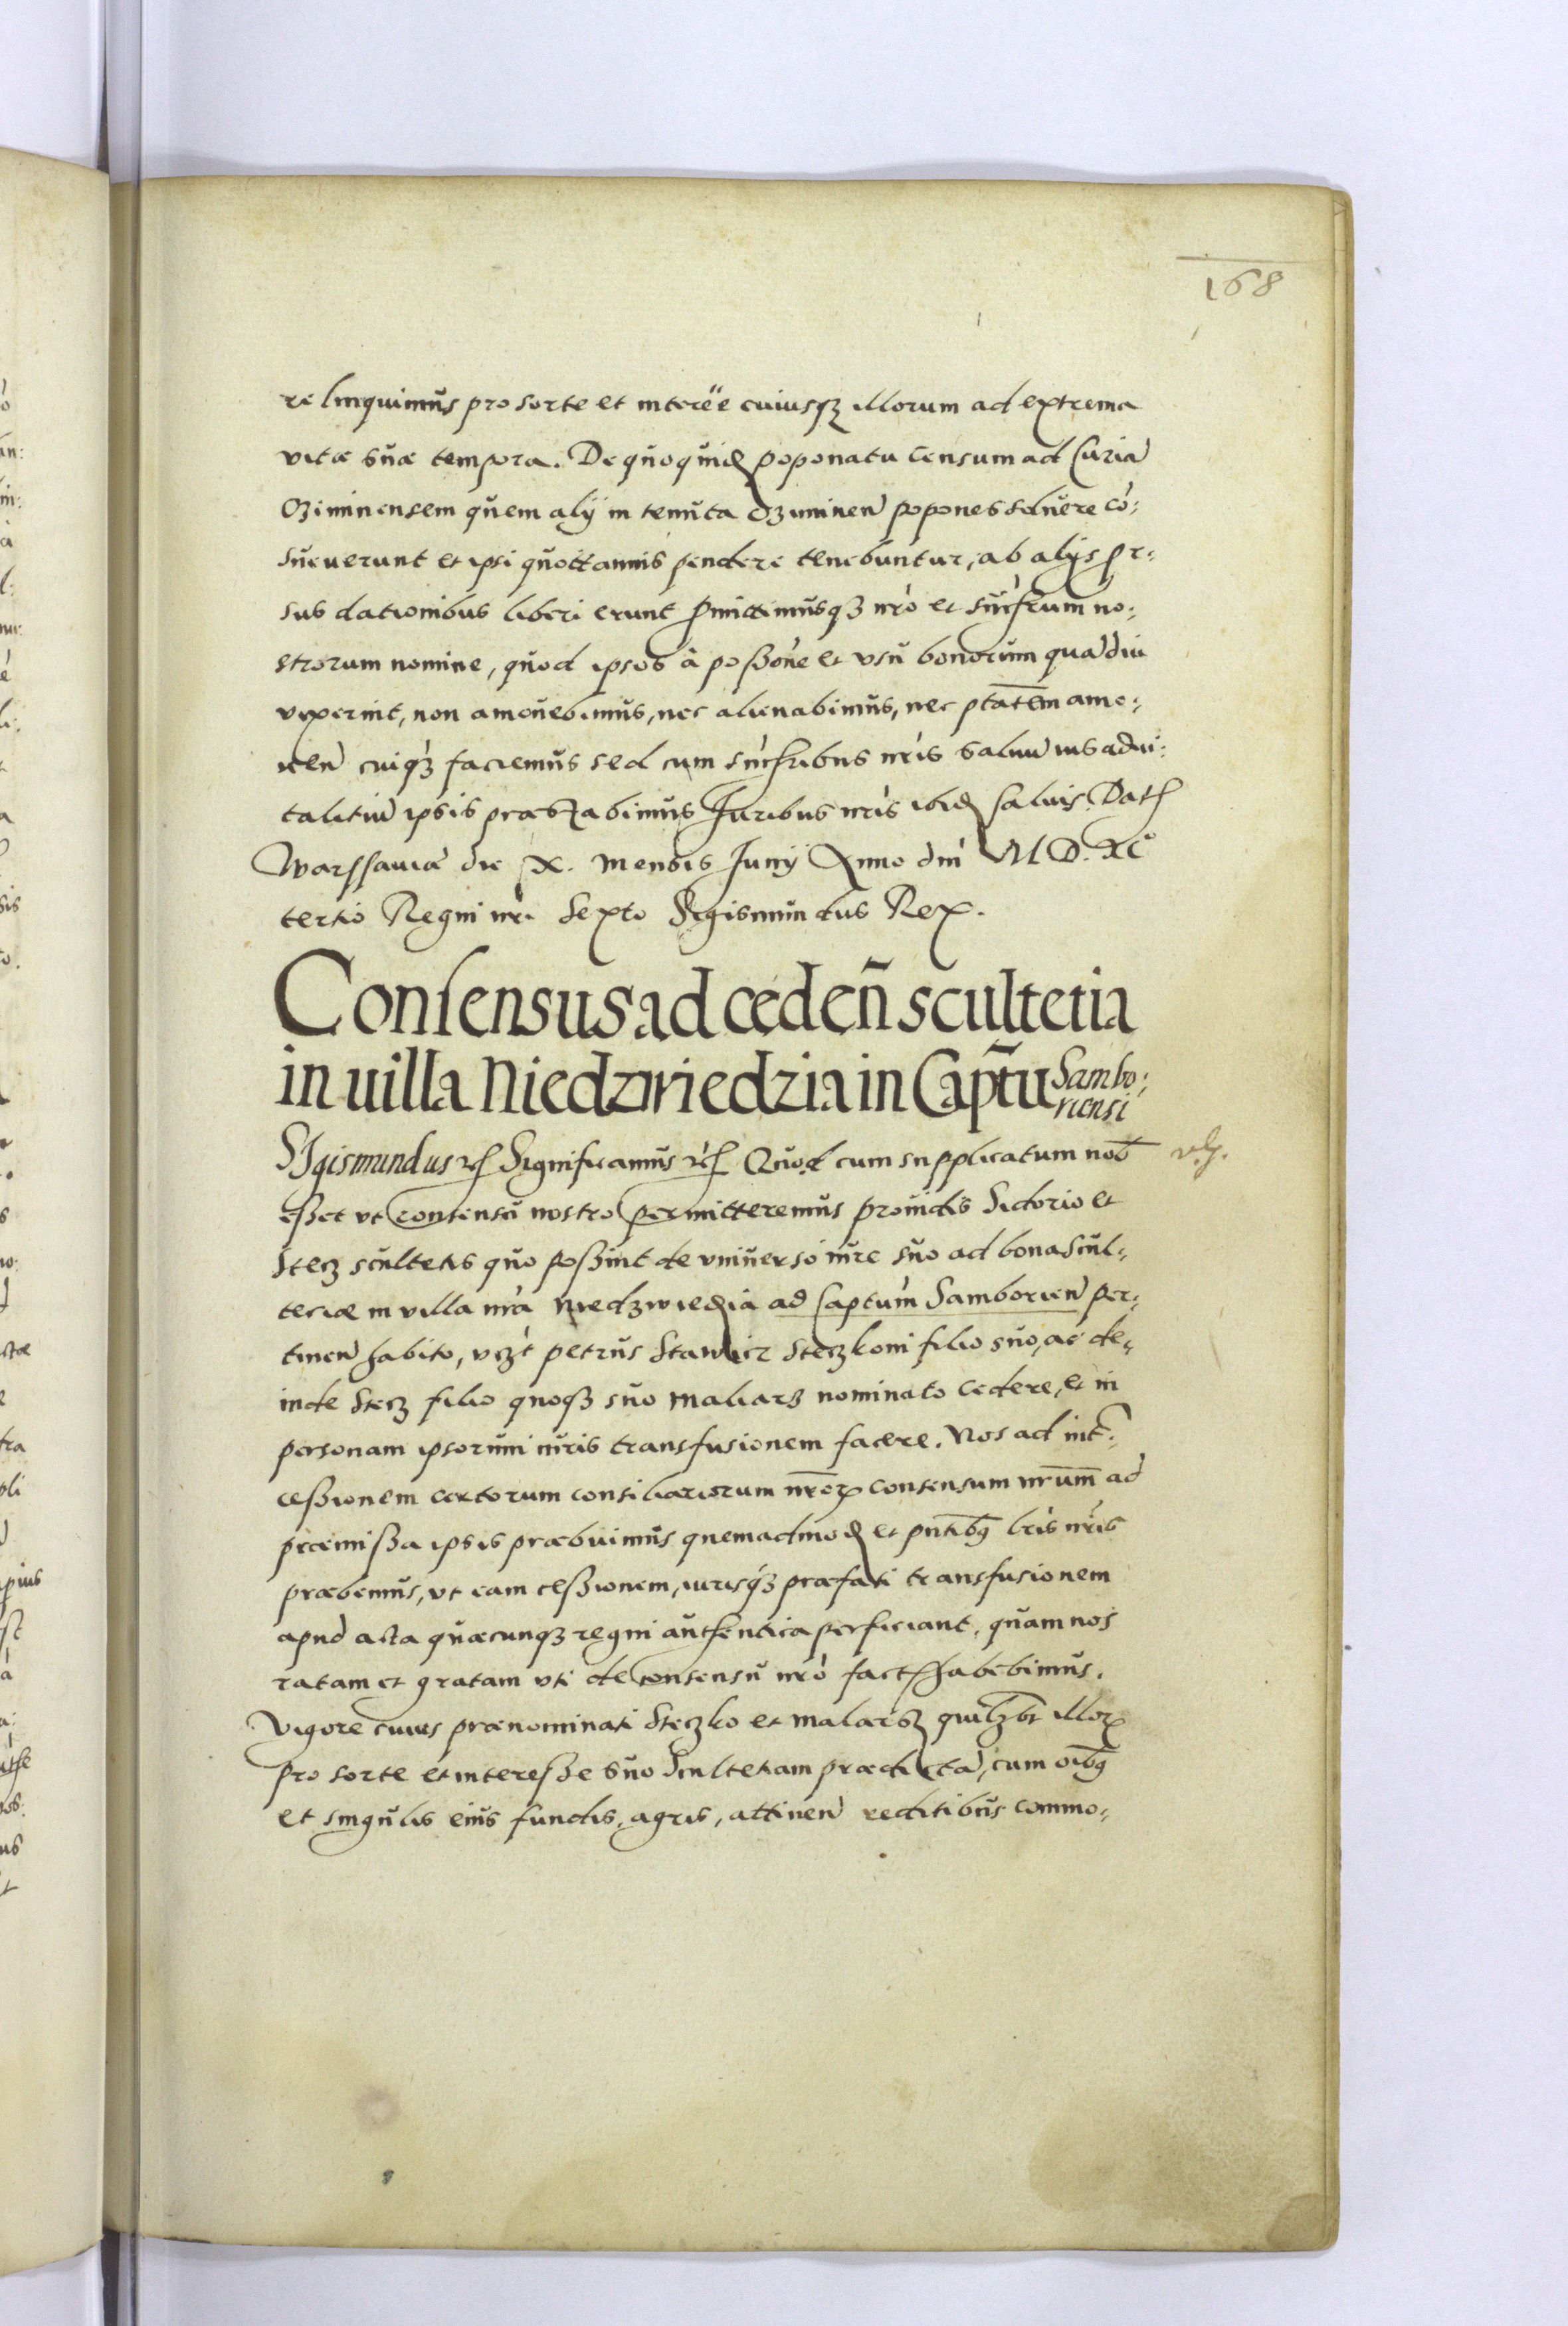 168
relinquimus pro sorte et interẽe cuiusqȝ illorum ad extrema
vitæ suæ tempora. De quo quidẽ poponatu censum ad Curiã
Oziminensem quem alÿ in tenuta Oziminen̄ popones soluere cõ:
sueuerunt et ipsi quottannis pendere tenebuntur, ab alÿs pr:
sus dationibus liberi erunt ꝓmittimusqȝ nr̃o et succ̃rum no:
strorum nomine, quod ipsos à poßõne et vsu bonorum quãdiu
vixerint, non amouebimus, nec alienabimus, nec ptãtem amo:
uen̄ cuiqȝ faciemus sed cum succ̃ribus nr̃is saluũ ius adui:
talitiũ ipsis præstabimus Juribus nr̃is ibid̃ saluis. Dat̃
Warssauiæ die X. mensis Junÿ Anno dnĩ M D. XC
tertio Regni nr̃i sexto Sigismundus Rex.
Consensus ad ceden̄ scultetia
in uilla Niedzwiedzia in Capt̃u Sambo:
riensi
SJgismundus rc̃ Significamus rc̃ Quod cum supplicatum nob̃
eßet vt consensu nostro permitteremus prouidis Sidorio et
Stecz scultetis quo poßint de vniuerso iure suo ad bona scul:
tetiæ in villa nr̃a Niedzwiedzia ad Captum̃ Samborien̄ per:
tinen̄ habito, vczt̃ petrus Stawicz Steczkoni filio suo, ac de:
inde Stecz filio quoqȝ suo Maliarz nominato cedere, et in
personam ipsorum iuris transfusionem facere. Nos ad int̃:
ceßionem certorum consiliariorum nr̃orꝝ consensum nr̃um ad
præmißa ipsis præbuimus quemadmod̃ et pñtibꝰ lr̃is nr̃is
præbemus, vt eam ceßionem, iurisqȝ præfati transfusionem
apud acta quæcunqȝ regni authentica perficiant, quam nos
ratam et gratam vti de consensu nr̃o fact̃ habebimus.
Vigore cuius prænominati Steczko et Malarz quilzbt̃ illorꝝ
pro sorte et intereße suo Scultetiam prædictã, cum oĩbꝰ
et singulis eius fundis, agris, attinen̄ reditibus commo: